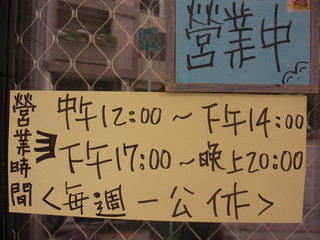 營業中
營業時間
中午12:00～下午14:00
下午17:00～晚上20:00
<每週一公休>